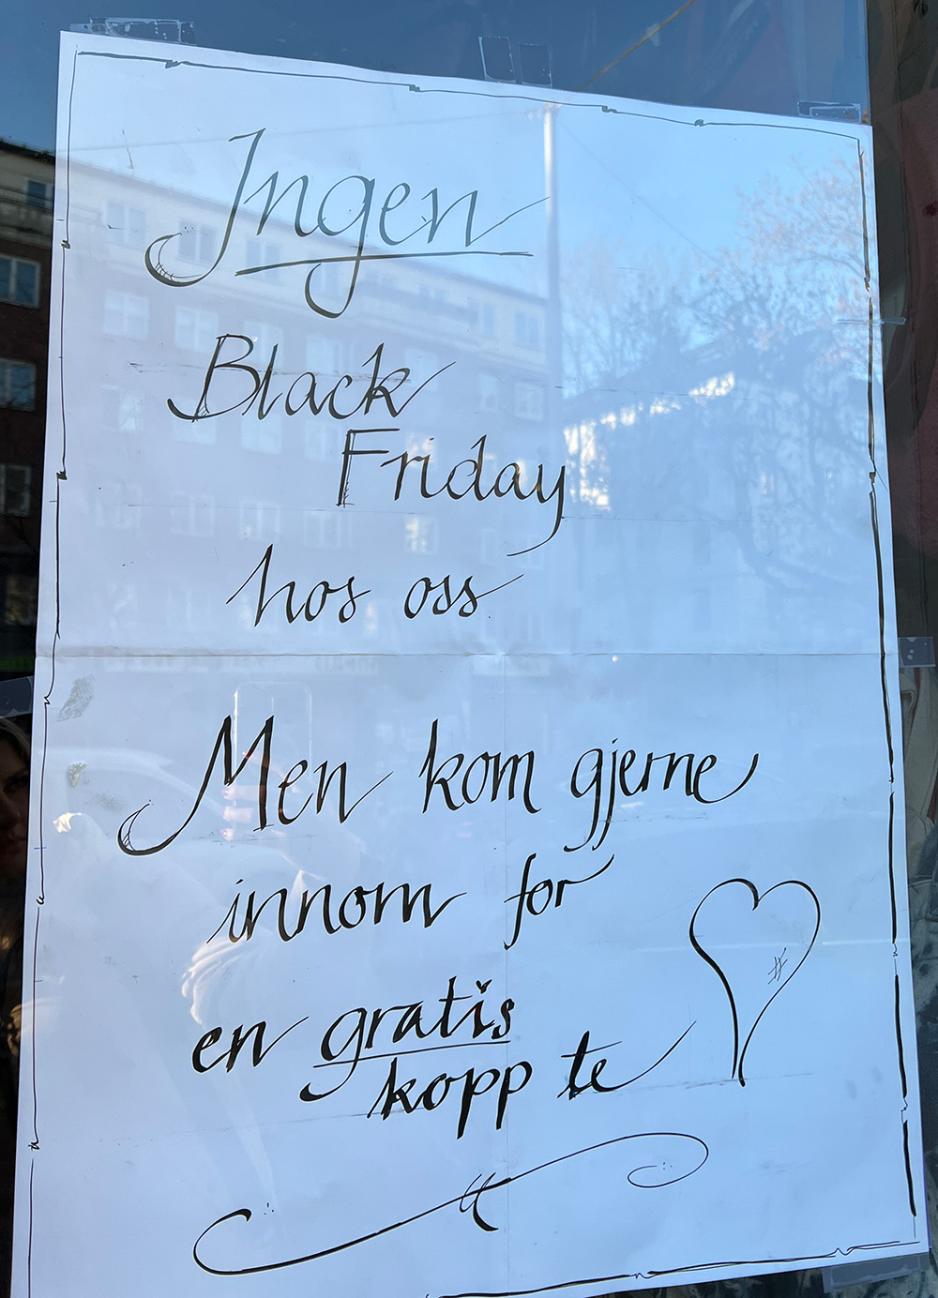 Ingen
Black
Friday
hos oss
Men kom gjerne
innom for
en gratis
kopp te